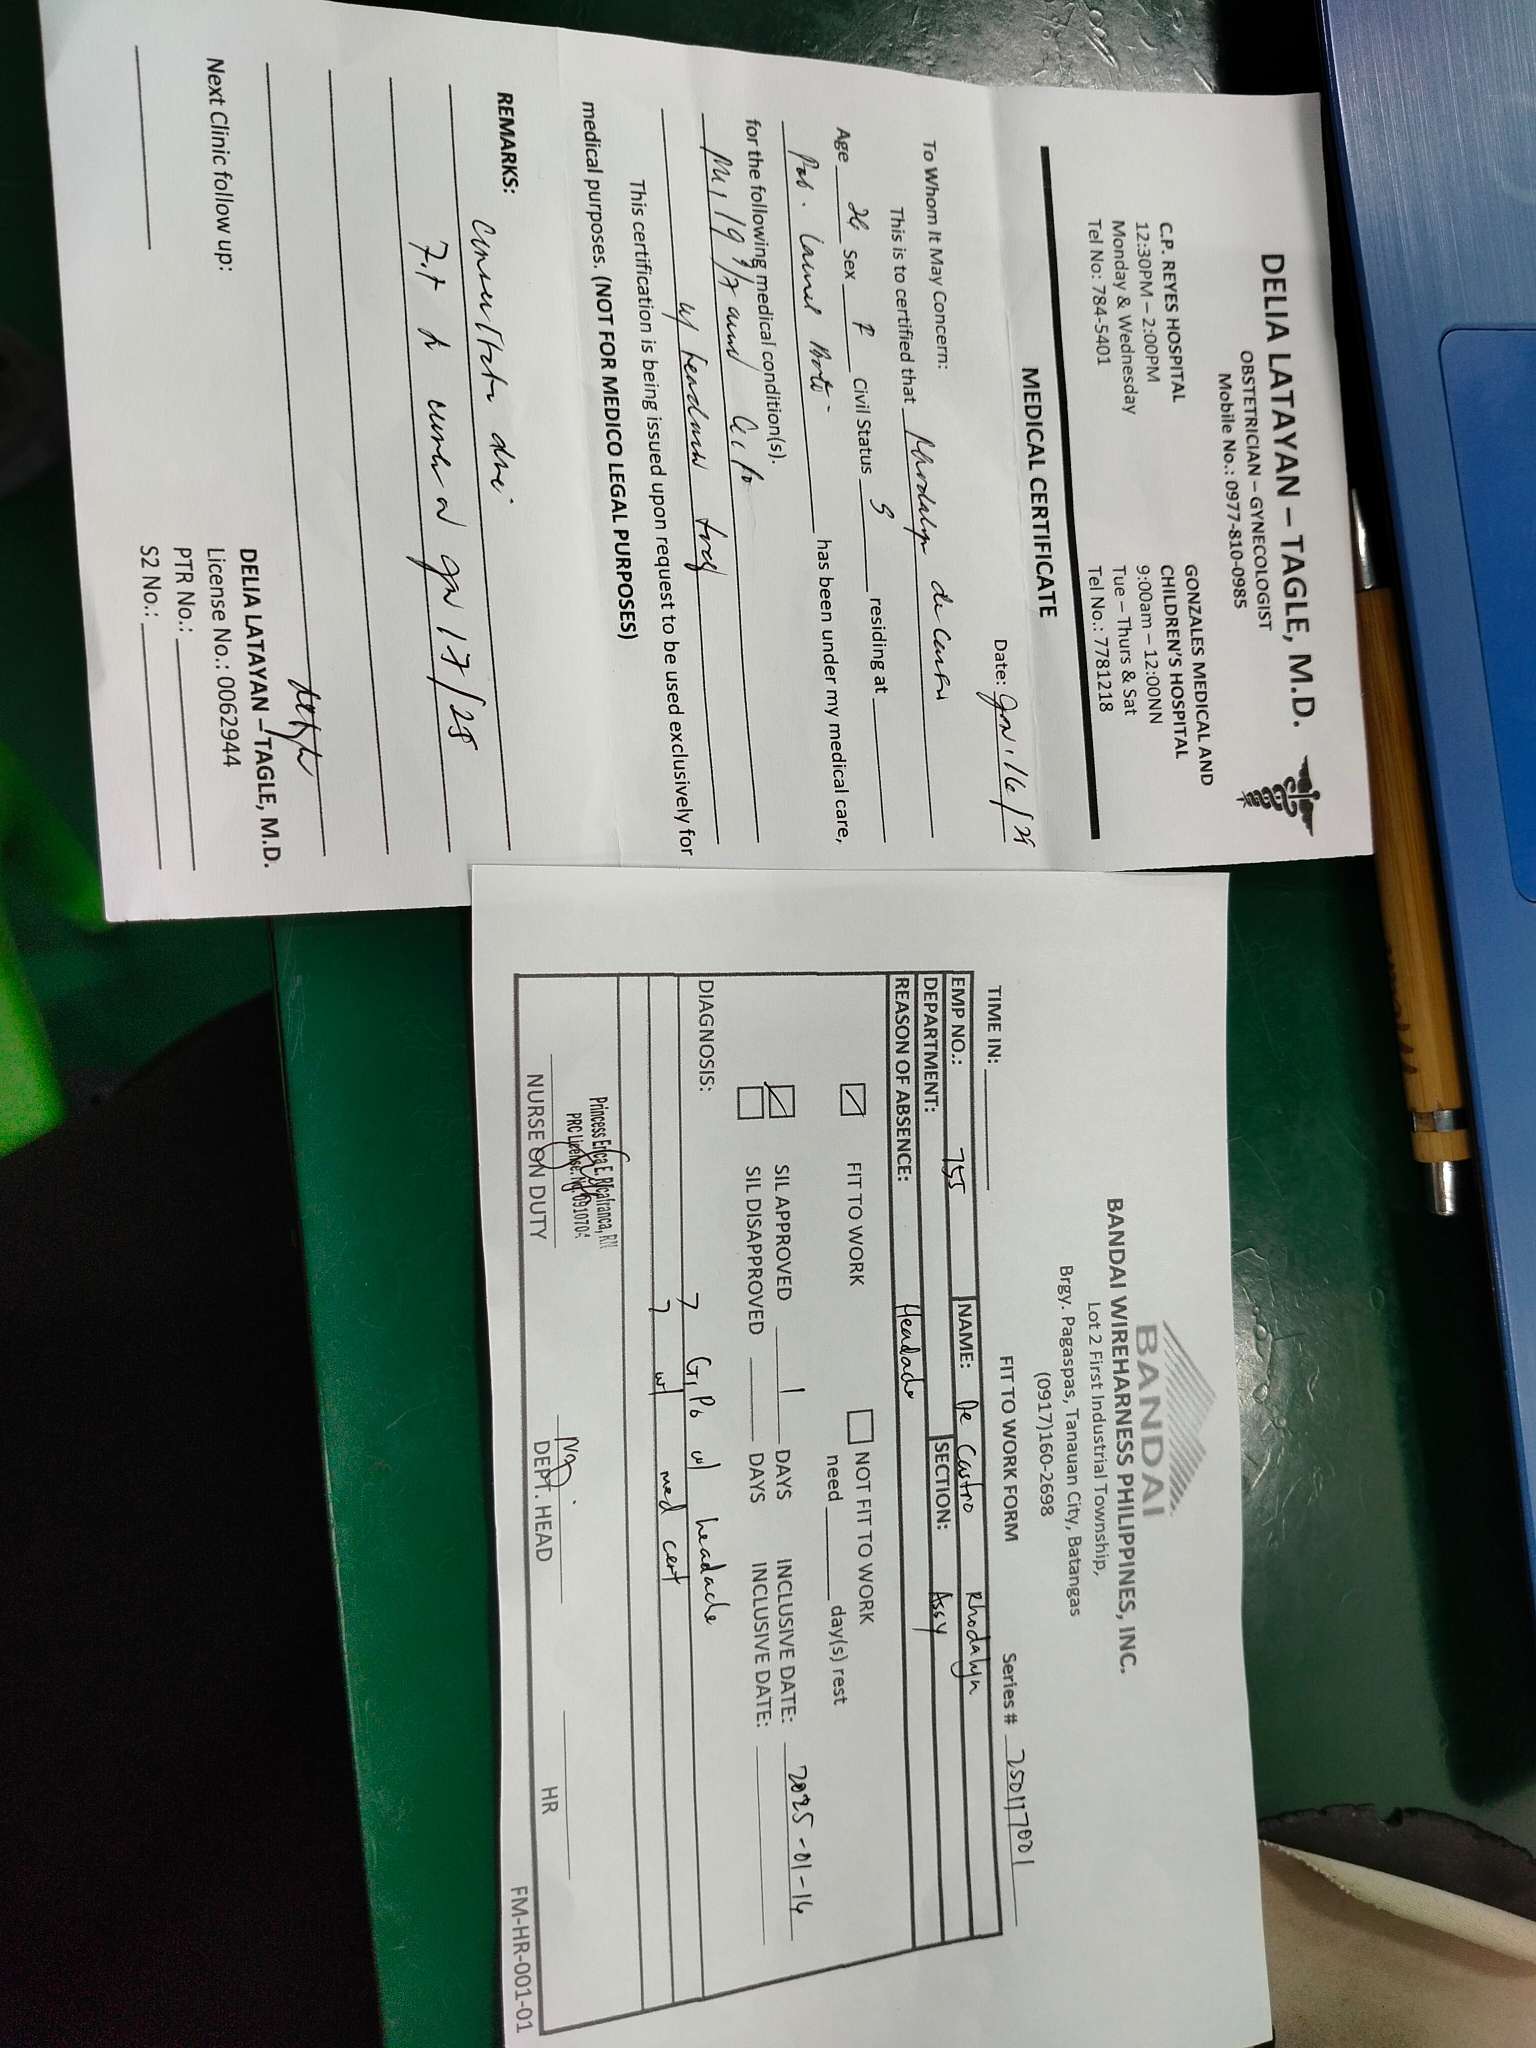 DELIA LATAYAN – TAGLE, M.D.
OBSTETRICIAN – GYNECOLOGIST
Mobile No.: 0977-810-0985
C.P. REYES HOSPITAL
12:30PM – 2:00PM
Monday & Wednesday
Tel No: 784-5401
GONZALES MEDICAL AND
CHILDREN'S HOSPITAL
9:00am – 12:00NN
Tue – Thurs & Sat
Tel No.: 7781218
MEDICAL CERTIFICATE
Date: Jan. 16/25
To Whom It May Concern:
This is to certified that Rhodalyn de Castro
Age Sex F Civil Status S residing at
Pob. Laurel has been under my medical care,
for the following medical condition(s).
w/ headache
This certification is being issued upon request to be used exclusively for
medical purposes. (NOT FOR MEDICO LEGAL PURPOSES)
REMARKS:
Consultation done
Fit to work on Jan 17/25
DELIA LATAYAN – TAGLE, M.D.
License No.: 0062944
PTR No.:
S2 No.:
Next Clinic follow up:
BANDAI
BANDAI WIREHARNESS PHILIPPINES, INC.
Lot 2 First Industrial Township,
Brgy. Pagaspas, Tanauan City, Batangas
(0917)160-2698
FIT TO WORK FORM
Series # 250117001
TIME IN:
EMP NO.: 755 NAME: De Castro Rhodalyn
DEPARTMENT: SECTION: Assy
REASON OF ABSENCE: Headache
FIT TO WORK NOT FIT TO WORK
need day(s) rest
SIL APPROVED 1 DAYS INCLUSIVE DATE: 2025-01-16
SIL DISAPPROVED DAYS INCLUSIVE DATE:
DIAGNOSIS: G1P0 w/ headache
w/ med cert
Princess Erica E. Ricafranca, RN
PRC License No. 0910704
NURSE ON DUTY DEPT. HEAD HR
FM-HR-001-01